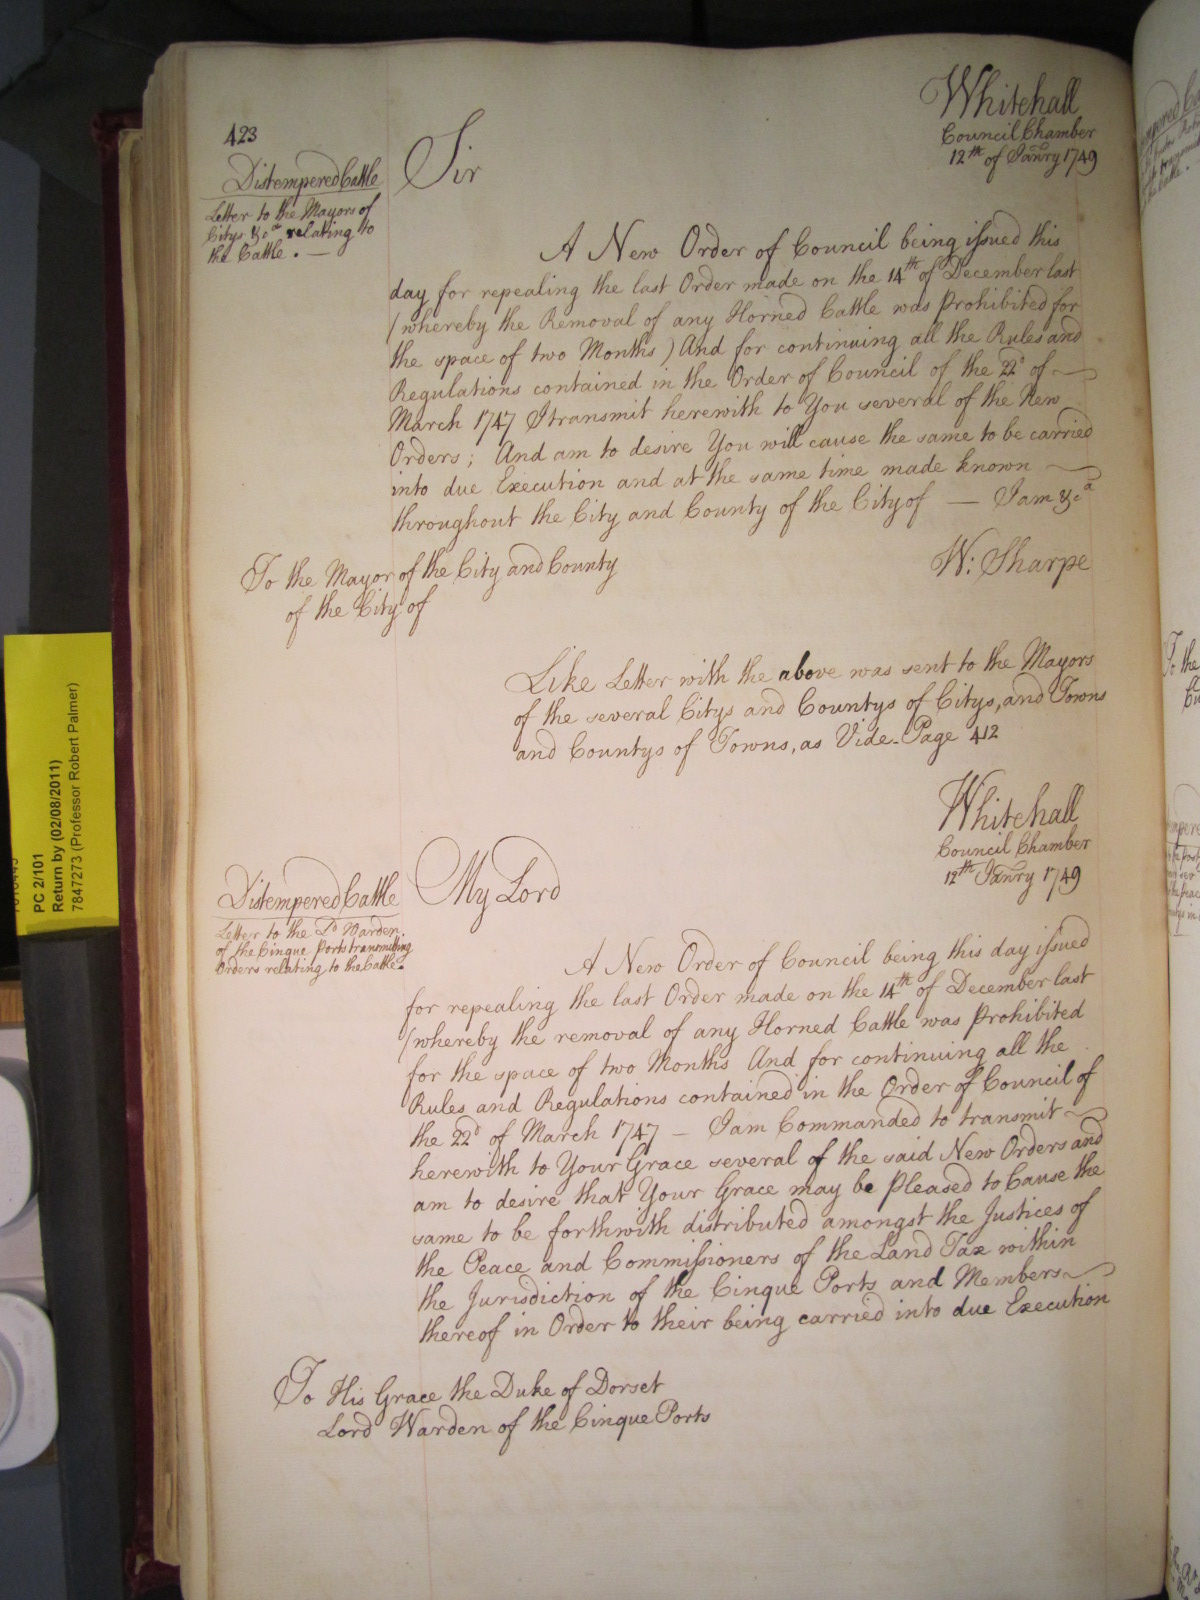 423
Whitehall
Council Chamber
12th of Janry 1749
Distempered Cattle
Letter to the Mayors of
Citys &ca relating to
the Cattle. —
Sir
A New Order of Council being issued this
day for repealing the last Order made on the 14th of December last
(whereby the Removal of any Horned Cattle was Prohibited for
the space of two Months) And for continuing all the Rules and
Regulations contained in the Order of Council of the 22d of
March 1747 I transmit herewith to You several of the New
Orders; And am to desire You will cause the same to be carried
into due Execution and at the same time made known
throughout the City and County of the City of — I am &ca
W: Sharpe
To the Mayor of the City and County
of the City of
Like Letter with the above was sent to the Mayors
of the several Citys and Countys of Citys, and Towns
and Countys of Towns, as Vide Page 412
Whitehall
Council Chamber
12th Janry 1749
Distempered Cattle
Letter to the Ld Warden
of the Cinque Ports transmitting
Orders relating to the Cattle.
My Lord
A New Order of Council being this day issued
for repealing the last Order made on the 14th of December last
(whereby the removal of any Horned Cattle was Prohibited
for the space of two Months And for continuing all the
Rules and Regulations contained in the Order of Council of
the 22d of March 1747 — I am Commanded to transmit
herewith to Your Grace several of the said New Orders and
am to desire that Your Grace may be Pleased to Cause the
same to be forthwith distributed amongst the Justices of
the Peace and Commissioners of the Land Tax within
the Jurisdiction of the Cinque Ports and Members
thereof in Order to their being carried into due Execution
To His Grace the Duke of Dorset
Lord Warden of the Cinque Ports
PC 2/101
Return by (02/08/2011)
7847273 (Professor Robert Palmer)